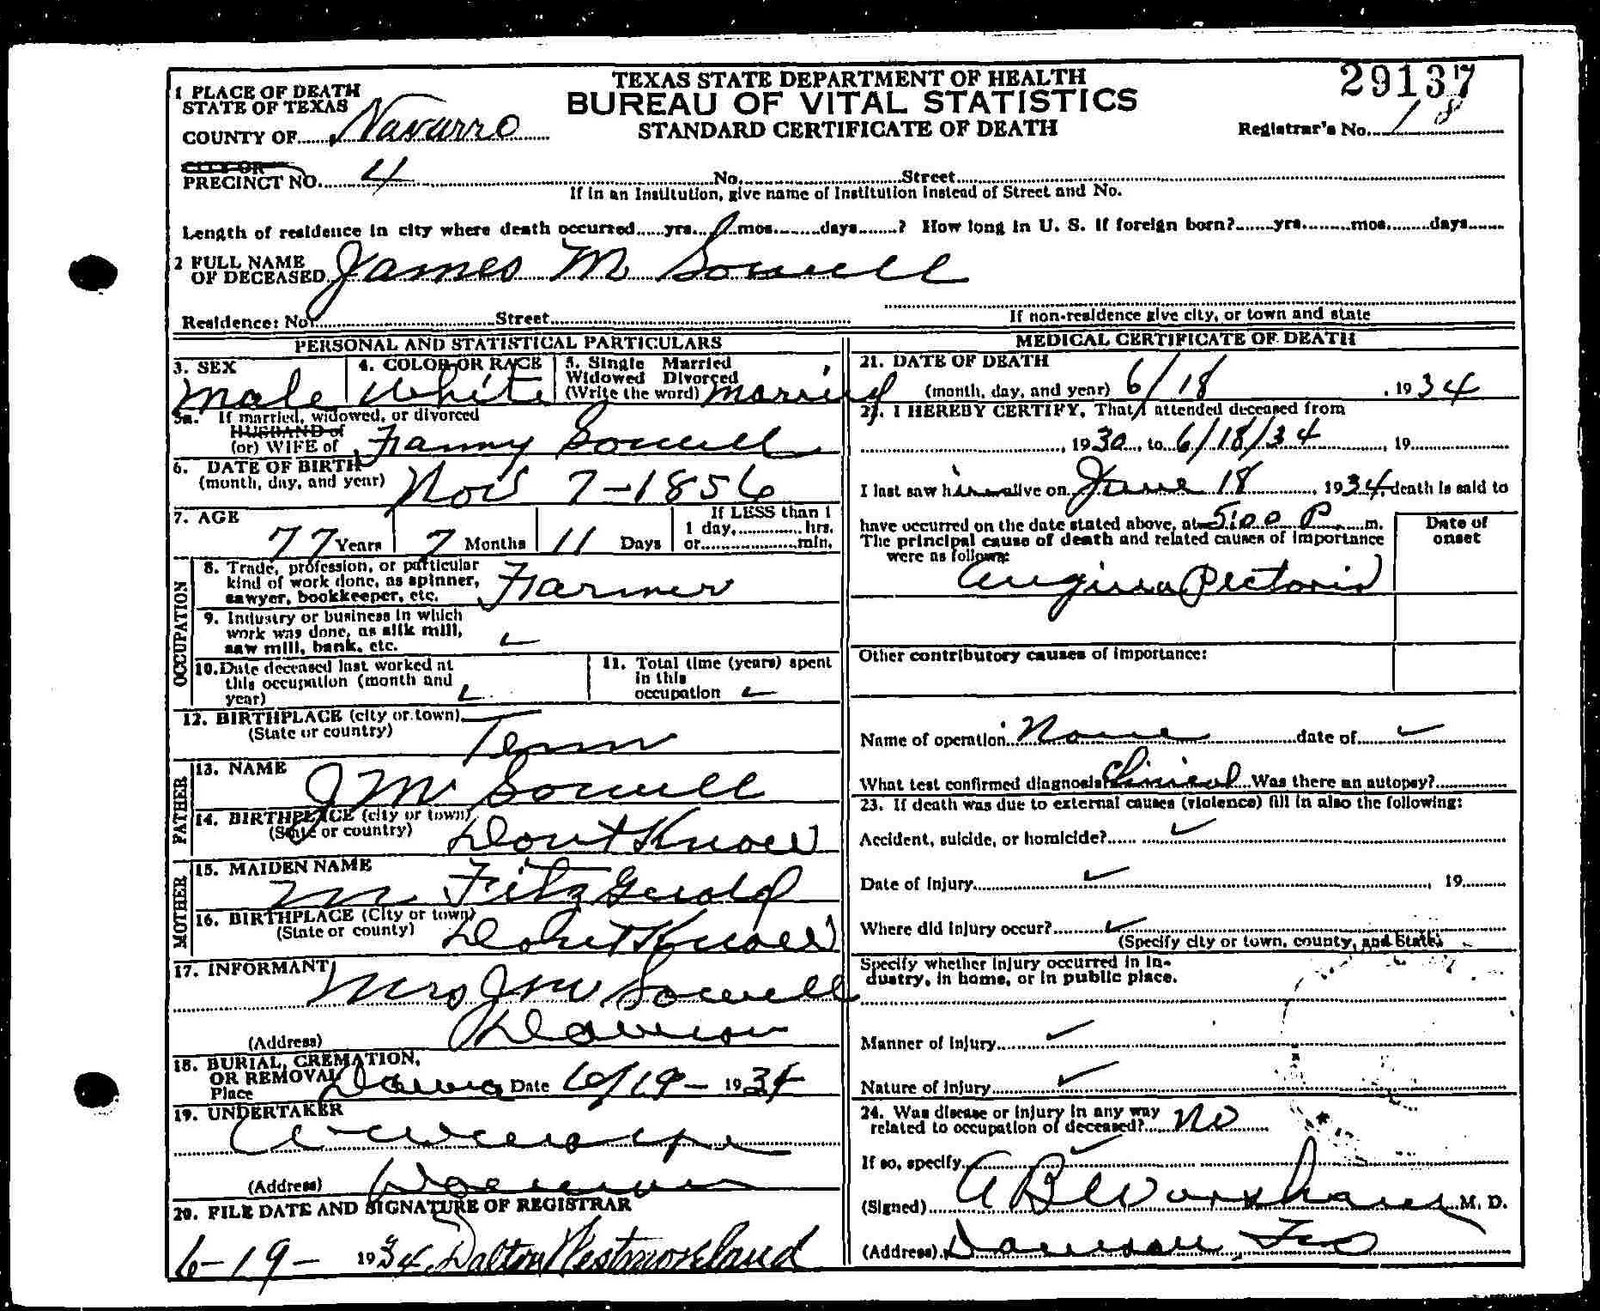 29137
TEXAS STATE DEPARTMENT OF HEALTH
BUREAU OF VITAL STATISTICS
STANDARD CERTIFICATE OF DEATH
Registrar's No. 18
1 PLACE OF DEATH
STATE OF TEXAS
COUNTY OF Navarro
CITY OR
PRECINCT NO. 4 No. Street
If in an Institution, give name of Institution instead of Street and No.
Length of residence in city where death occurred yrs. mos. days ? How long in U. S. if foreign born? yrs. mos. days
2 FULL NAME
OF DECEASED James M Sowell
Residence: No. Street
If non-residence give city, or town and state
PERSONAL AND STATISTICAL PARTICULARS
3. SEX
Male
4. COLOR OR RACE
White
5. Single Married
Widowed Divorced
(Write the word) Married
5a. If married, widowed, or divorced
HUSBAND of
(or) WIFE of Fanny Sowell
6. DATE OF BIRTH
(month, day, and year) Nov 7-1856
7. AGE
77 Years 7 Months 11 Days
If LESS than 1
1 day, hrs.
or min.
OCCUPATION
8. Trade, profession, or particular
kind of work done, as spinner,
sawyer, bookkeeper, etc. Farmer
9. Industry or business in which
work was done, as silk mill,
saw mill, bank, etc.
10. Date deceased last worked at
this occupation (month and
year)
11. Total time (years) spent
in this
occupation
12. BIRTHPLACE (city or town)
(State or country) Tenn
FATHER
13. NAME
J M Sowell
14. BIRTHPLACE (city or town)
(State or country) Dont Know
MOTHER
15. MAIDEN NAME
M FitzGerald
16. BIRTHPLACE (City or town)
(State or county) Dont Know
17. INFORMANT
Mrs J M Sowell
(Address) Dawson
18. BURIAL, CREMATION,
OR REMOVAL
Place Dawson Date 6/19- 1934
19. UNDERTAKER
(Address) Dawson
20. FILE DATE AND SIGNATURE OF REGISTRAR
6-19- 1934 Dalton Westmoreland
MEDICAL CERTIFICATE OF DEATH
21. DATE OF DEATH
(month, day, and year) 6/18 , 1934
22. I HEREBY CERTIFY, That I attended deceased from
, 1930, to 6/18/34 , 19
I last saw him alive on June 18 , 1934, death is said to
have occurred on the date stated above, at 5:00 P. m.
The principal cause of death and related causes of importance
were as follows:
Date of
onset
Angina Pectoris
Other contributory causes of importance:
Name of operation None date of
What test confirmed diagnosis? Clinical Was there an autopsy?
23. If death was due to external causes (violence) fill in also the following:
Accident, suicide, or homicide?
Date of injury , 19
Where did injury occur?
(Specify city or town, county, and State)
Specify whether injury occurred in in-
dustry, in home, or in public place.
Manner of injury
Nature of injury
24. Was disease or injury in any way
related to occupation of deceased? No
If so, specify
(Signed) A B Workham M. D.
(Address) Dawson, Tex